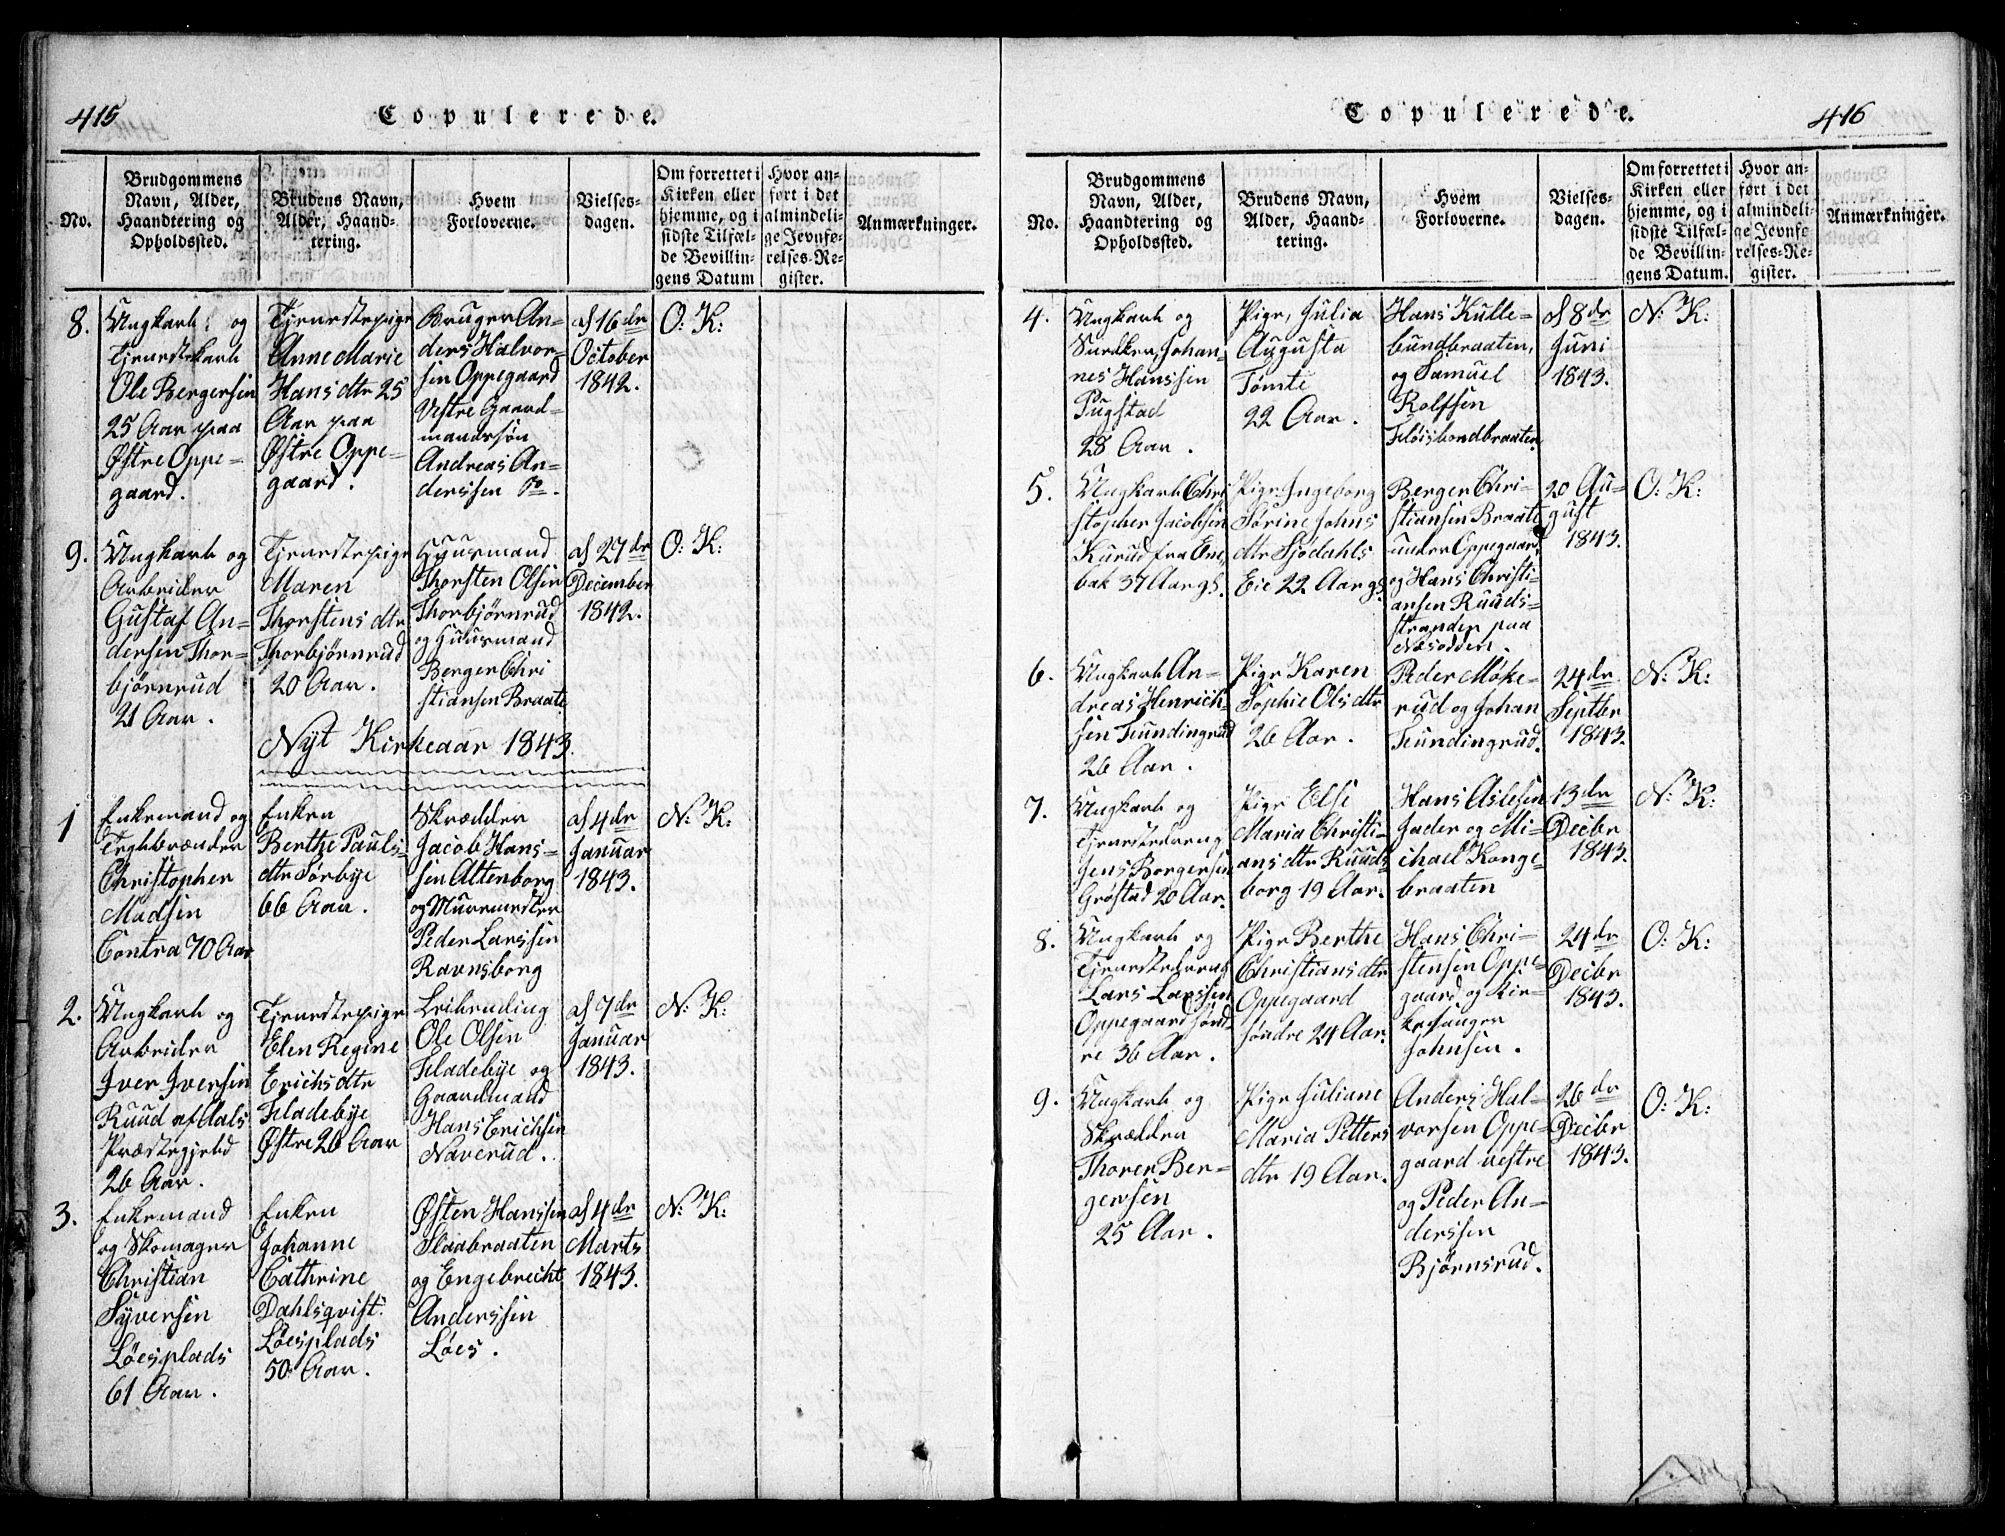 415
Copulerede.
No.
Brudgommens
Navn, Alder,
Haandtering og
Opholdssted.
Brudens Navn,
Alder, Haand-
tering.
Hvem
Forloverne.
Vielses-
dagen.
Om forrettet i
Kirken eller
hjemme, og i
sidste Tilfæl-
de Bevillin-
gens Datum
Hvor an-
ført i det
almindeli-
ge Jevnfø-
relses-Re-
gister.
Anmærkninger.
8.
Ungkarl og
Tjenestekarl
Ole Bergersen
25 Aar paa
Østre Oppe-
gaard.
Tjenestepige
Anne Marie
Hansdtr 25
Aar paa
Østre Oppe-
gaard.
Bruger An-
ders Halvor-
sen Oppegaard
Vestre Gaard-
mandssøn
Andreas An-
derssen
d 16de
October
1842.
O: K:
9.
Ungkarl og
Arbeider
Gustaf An-
dersen Thor-
bjørnrud
21 Aar.
Tjenestepige
Maren
Thorstensdtr
Thorbjørnrud
20 Aar.
Huusmand
Thorsten Olsen
Thorbjørnrud
og Huusmand
Berger Chri
stiansen Braate
d 27de
December
1842.
O: K:
Nyt Kirkeaar 1843.
1
Enkemand og
Teglbrænder
Christopher
Madsen
Contra 70 Aar
Enken
Berthe Pauls-
dtr Sørbye
66 Aar.
Skrædder
Jacob Hans-
sen Altenborg
og Muurmester
Peder Larssen
Ravnsborg
d 4de
Januar
1843.
N: K:
2.
Ungkarl og
Arbeider
Iver Iversen
Ruud af Aals
Præstegjeld
26 Aar.
Tjenestepige
Elen Regine
Erichsdtr
Fladebye
Østre 26 Aar
Leilending
Ole Olsen
Fladebye og
Gaardmand
Hans Erichsen
Naverud.
d 7de
Januar
1843.
N: K:
3.
Enkemand
og Skomager
Christian
Syversen
Løesplads
61 Aar.
Enken
Johanne
Cathrine
Dahlsqvist
Løesplads
50 Aar.
Østen Hanssen
Slaabraaten
og Engebrecht
Anderssen
Løes.
d 4de
Marts
1843.
N: K:
Copulerede.
416
No.
Brudgommens
Navn, Alder,
Haandtering og
Opholdssted.
Brudens Navn,
Alder, Haand-
tering.
Hvem
Forloverne.
Vielses-
dagen.
Om forrettet i
Kirken eller
hjemme, og i
sidste Tilfæl-
de Bevillin-
gens Datum.
Hvor an-
ført i det
almindeli-
ge Jevnfø-
relses-Re-
gister.
Anmærkninger.
4.
Ungkarl og
Snedker, Johan-
nes Hanssen
Pugstad
28 Aar.
Pige, Julia
Augusta
Tømte
22 Aar.
Hans Kulle-
bundbraaten,
og Samuel
Rolfsen
Fløisbondbraaten
d 8de
Juni
1843.
N: K:
5.
Ungkarl Chri
stopher Jacobsen
Kurud fra Ene
bak 37 Aar gl.
Pige Ingeborg
Sørine Johns
dtr Sjødahls
Eie 22 Aar gl.
Berger Chri-
stiansen Braate
under Oppegaard
og Hans Christi-
ansen Ruuds-
stranden paa
Næsodden.
20 Au-
gust
1843.
O: K:
6.
Ungkarl An-
dreas Henrich-
sen Tundingrud
26 Aar.
Pige Karen
Sophie Olsdtr
26 Aar.
Peder Møke-
rud og Johan
Tundingrud.
24de
Septbr
1843.
N: K:
7.
Ungkarl og
Tjenestedreng
Jens Borgersen
Grøstad 20 Aar.
Pige Else
Maria Christi-
ansdtr Ruuds
borg 19 Aar.
Hans Aslesen
Jader og Mi-
chael Konge-
braaten
13de
Decbr
1843.
N: K:
8.
Ungkarl og
Tjenestedreng
Lars Larssen
Oppegaard sønd-
re 36 Aar.
Pige Berthe
Christiansdtr
Oppegaard
søndre 24 Aar.
Hans Chri-
stensen Oppe-
gaard og Kir-
kesanger
Johnsen.
24de
Decbr
1843.
O: K:
9.
Ungkarl og
Skrædder
Thorer Ber-
gersen
25 Aar.
Pige Juliane
Maria Petters
dtr 19 Aar.
Anders Hal-
vorsen Oppe-
gaard vestre
og Peder An-
derssen
Bjørnsrud.
26de
Decbr
1843.
O: K: